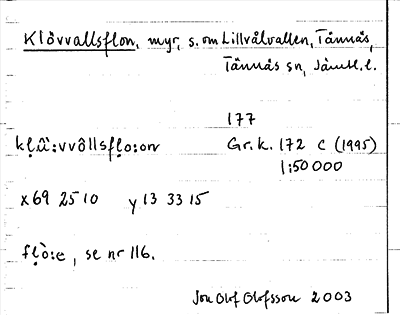 Klövvallsflon, myr, s. om Lillvålvallen, Tännäs,
Tännäs sn, Jämtl. l.
177
Gr.k. 172 C (1995)
1:50 000
x 69 25 10 y 13 33 15
se nr 116.
Jon Olof Olofsson 2003